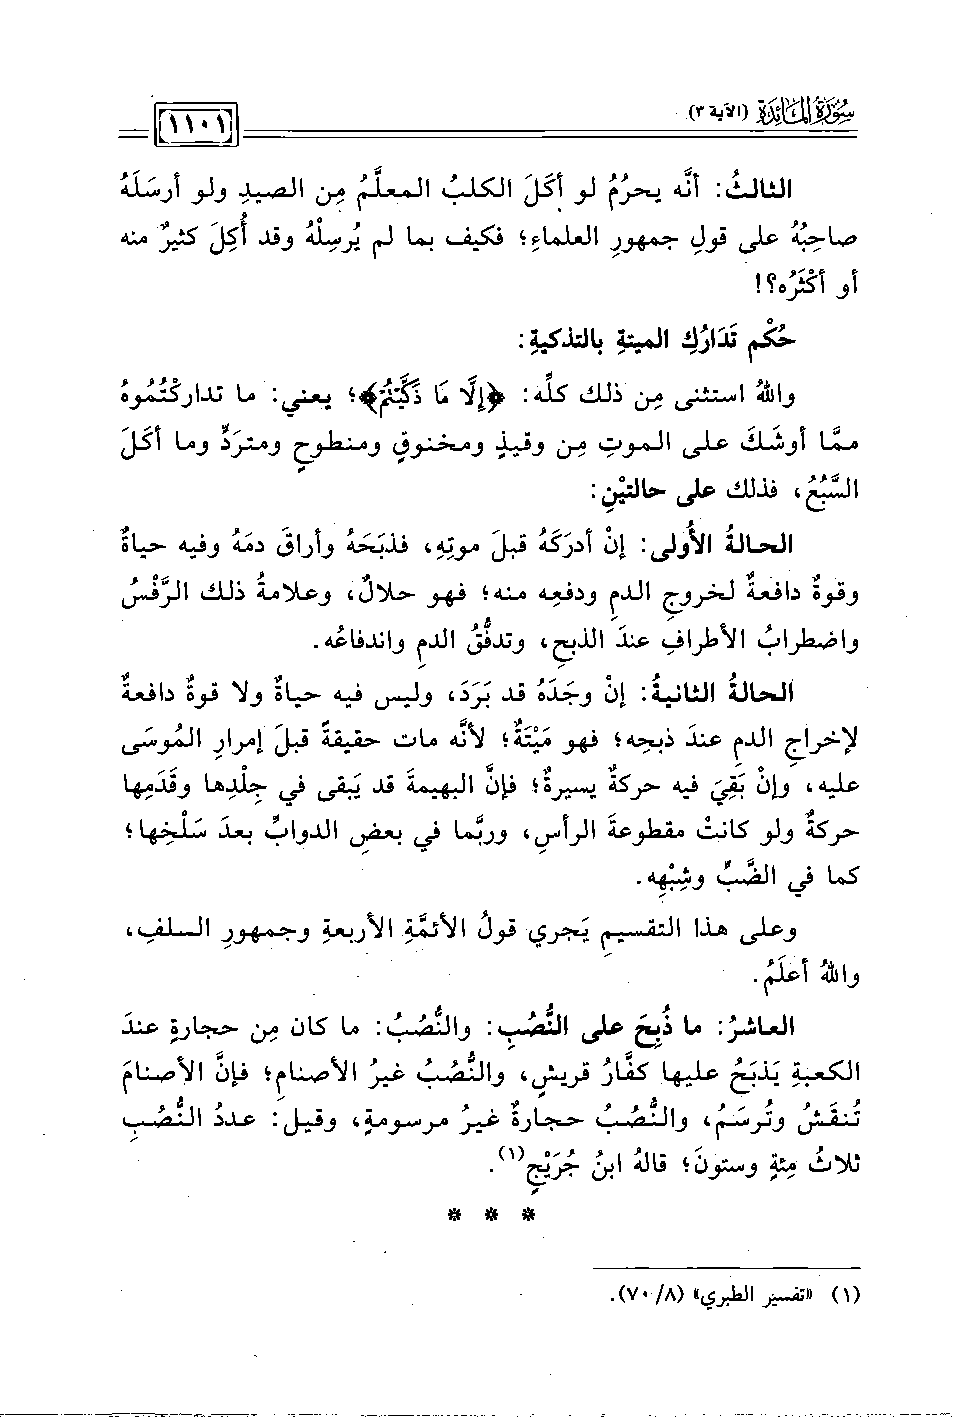 سورة المائدة (الآية ٣)
١١٠١
الثالثُ: أنَّه يحرُمُ لو أكَلَ الكلبُ المعلَّمُ مِن الصيدِ ولو أرسَلَهُ
صاحِبُهُ على قولِ جمهورِ العلماءِ؛ فكيف بما لم يُرسِلْهُ وقد أُكِلَ كثيرٌ منه
أو أكْثَرُه؟!
حُكْم تَدَارُكِ الميتةِ بالتذكيةِ:
واللهُ استثنى مِن ذلك كلِّه: ﴿إِلَّا مَا ذَكَّيْتُمْ﴾؛ يعني: ما تداركْتُمُوهُ
ممَّا أوشَكَ على الموتِ مِن وقيذٍ ومخنوقٍ ومنطوحٍ ومتردٍّ وما أكَلَ
السَّبُعُ، فذلك على حالتيْنِ:
الحالةُ الأُولى: إنْ أدرَكَهُ قبلَ موتِهِ، فذبَحَهُ وأراقَ دمَهُ وفيه حياةٌ
وقوةٌ دافعةٌ لخروجِ الدمِ ودفعِه منه؛ فهو حلالٌ، وعلامةُ ذلك الرَّفْسُ
واضطرابُ الأطرافِ عندَ الذبحِ، وتدفُّقُ الدمِ واندفاعُه.
الحالةُ الثانيةُ: إنْ وجَدَهُ قد بَرَدَ، وليس فيه حياةٌ ولا قوةٌ دافعةٌ
لإخراجِ الدمِ عندَ ذبحِه؛ فهو مَيْتَةٌ؛ لأنَّه مات حقيقةً قبلَ إمرارِ المُوسَى
عليه، وإنْ بَقِيَ فيه حركةٌ يسيرةٌ؛ فإنَّ البهيمةَ قد يَبقى في جِلْدِها وقَدَمِها
حركةٌ ولو كانتْ مقطوعةَ الرأسِ، وربَّما في بعضِ الدوابِّ بعدَ سَلْخِها؛
كما في الضَّبِّ وشِبْهِه.
وعلى هذا التقسيمِ يَجري قولُ الأئمَّةِ الأربعةِ وجمهورِ السلفِ،
واللهُ أعلَمُ.
العاشرُ: ما ذُبِحَ على النُّصُبِ: والنُّصُبُ: ما كان مِن حجارةٍ عندَ
الكعبةِ يَذبَحُ عليها كفَّارُ قريشٍ، والنُّصُبُ غيرُ الأصنامِ؛ فإنَّ الأصنامَ
تُنقَشُ وتُرسَمُ، والنُّصُبُ حجارةٌ غيرُ مرسومةٍ، وقيل: عددُ النُّصُبِ
ثلاثُ مِئةٍ وستونَ؛ قالهُ ابنُ جُرَيْجٍ(١).
* * *
(١) «تفسير الطبري» (٧٠/٨).